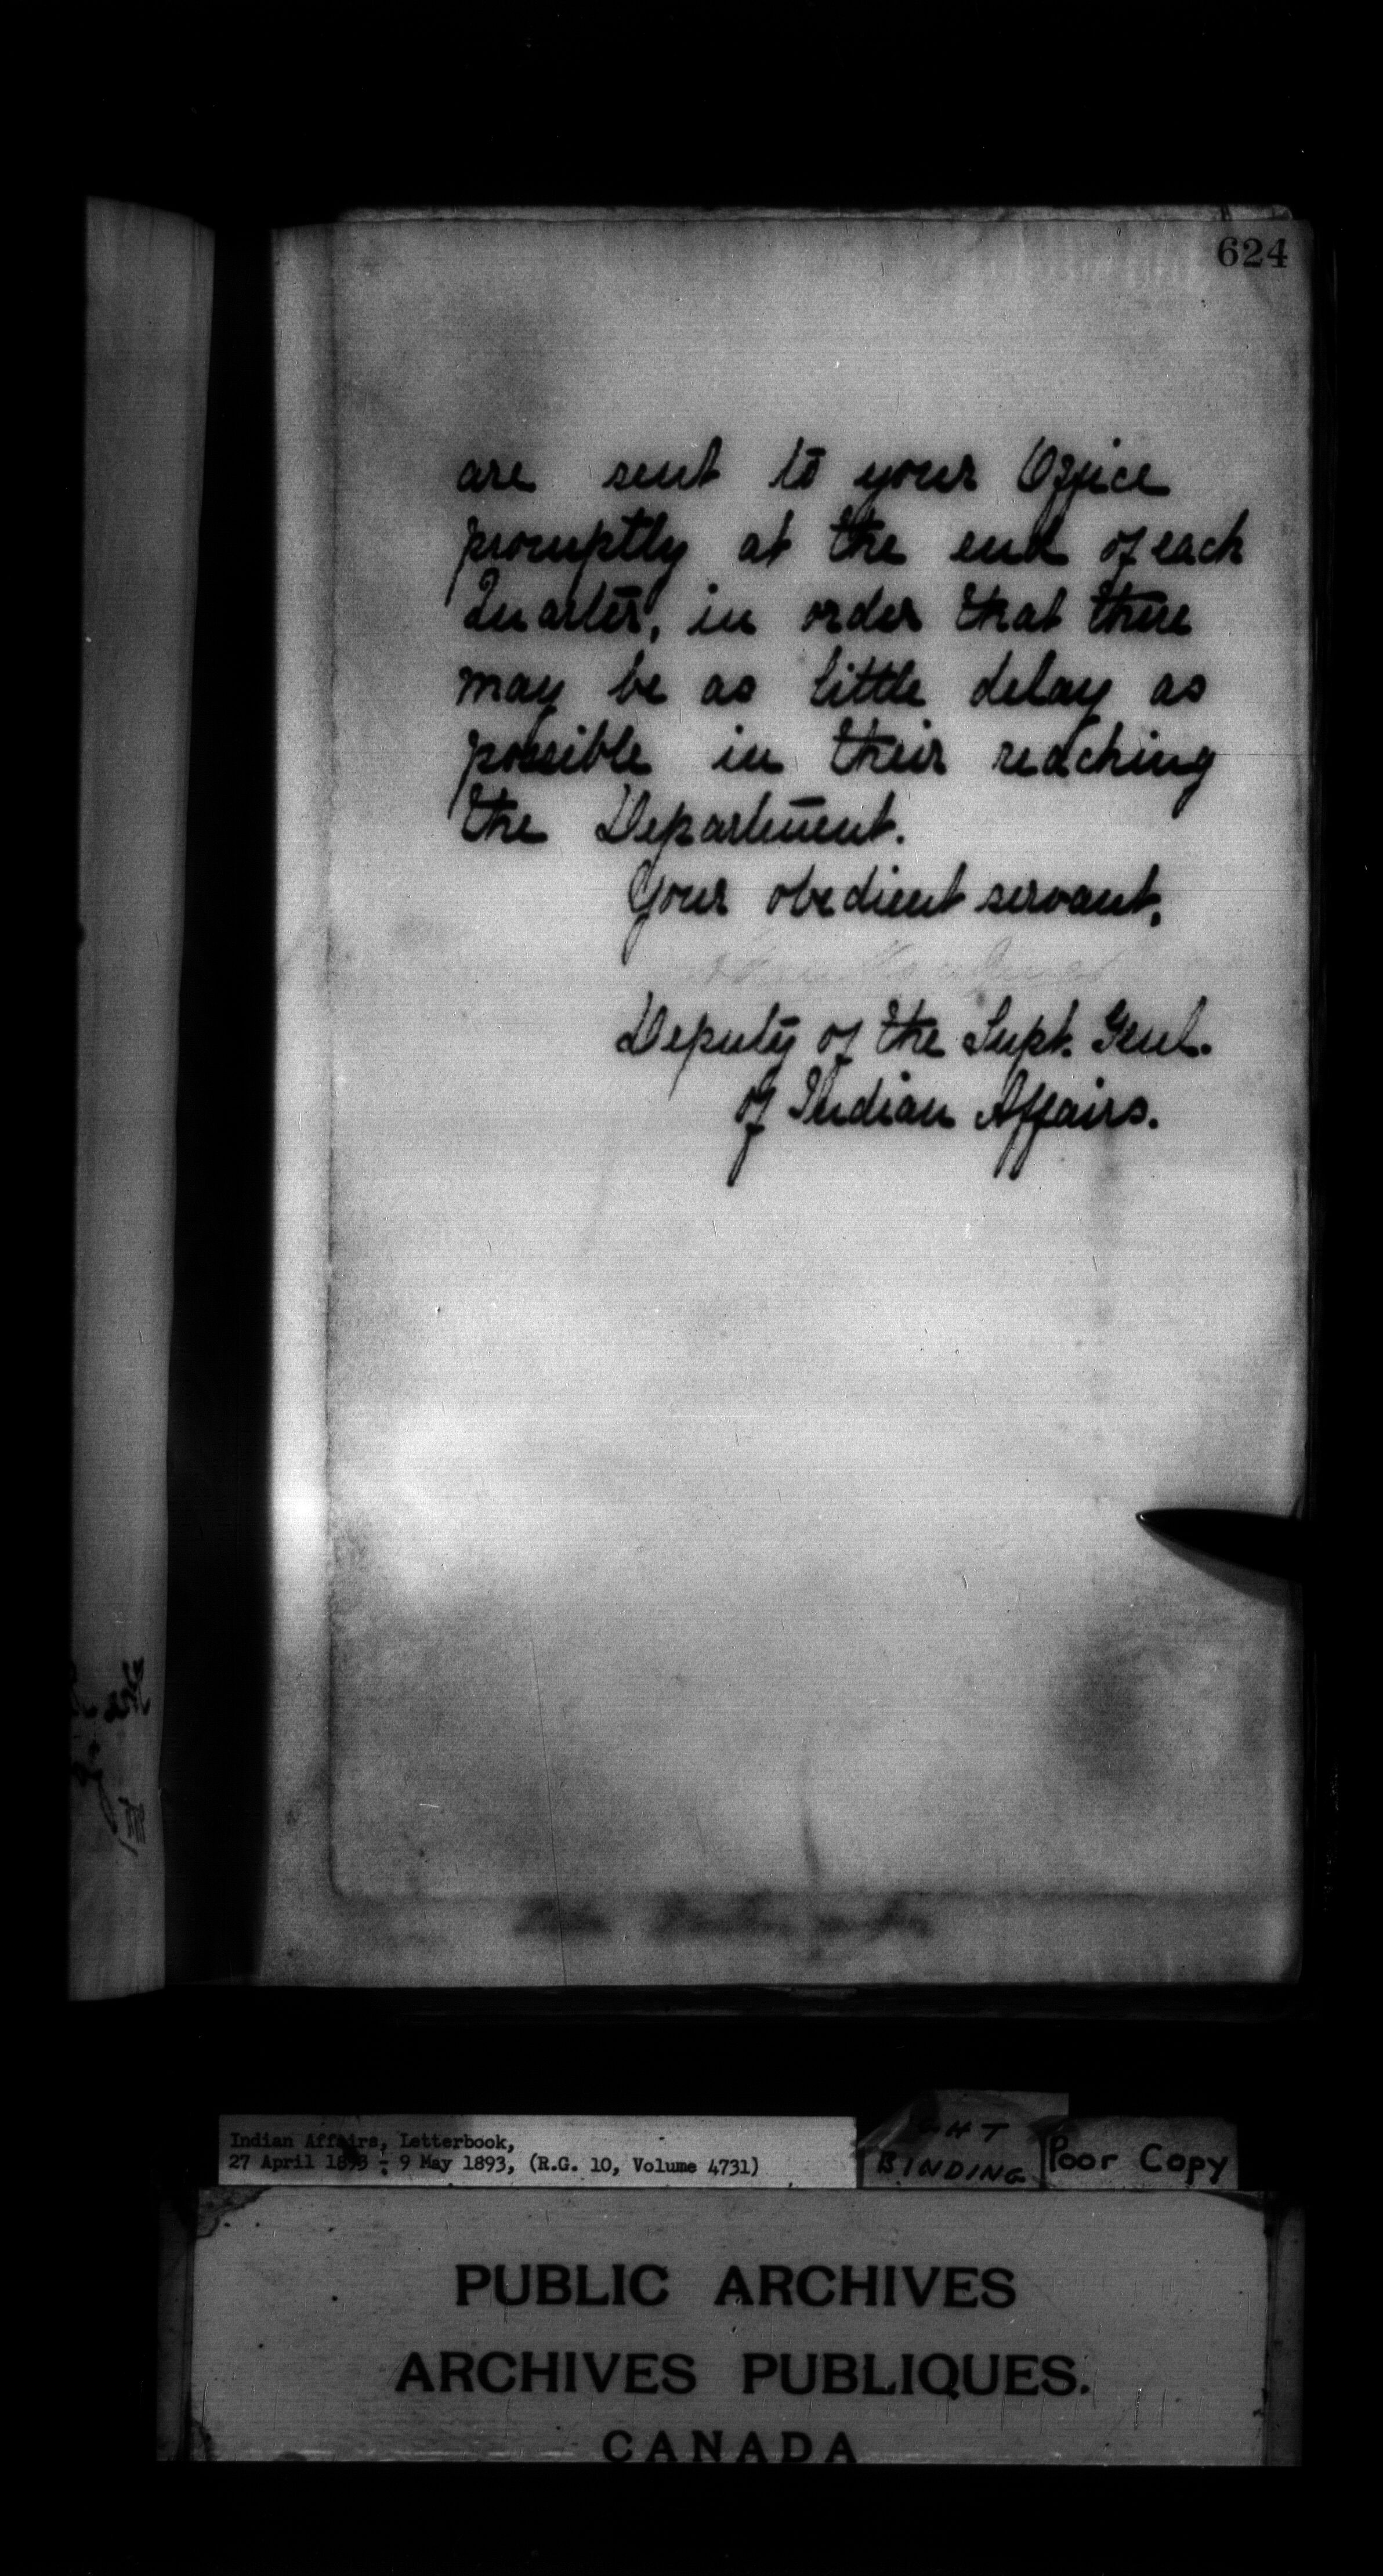 624
are sent to your Office
promptly at the end of each
Quarter, in order that there
may be as little delay as
possible in their reaching
the Department.
Your obedient servant,
Deputy of the Supt. Genl.
of Indian Affairs.
Indian Affairs, Letterbook,
27 April 1893 - 9 May 1893, (R.G. 10, Volume 4731)
BINDING
Poor Copy
PUBLIC ARCHIVES
ARCHIVES PUBLIQUES.
CANADA